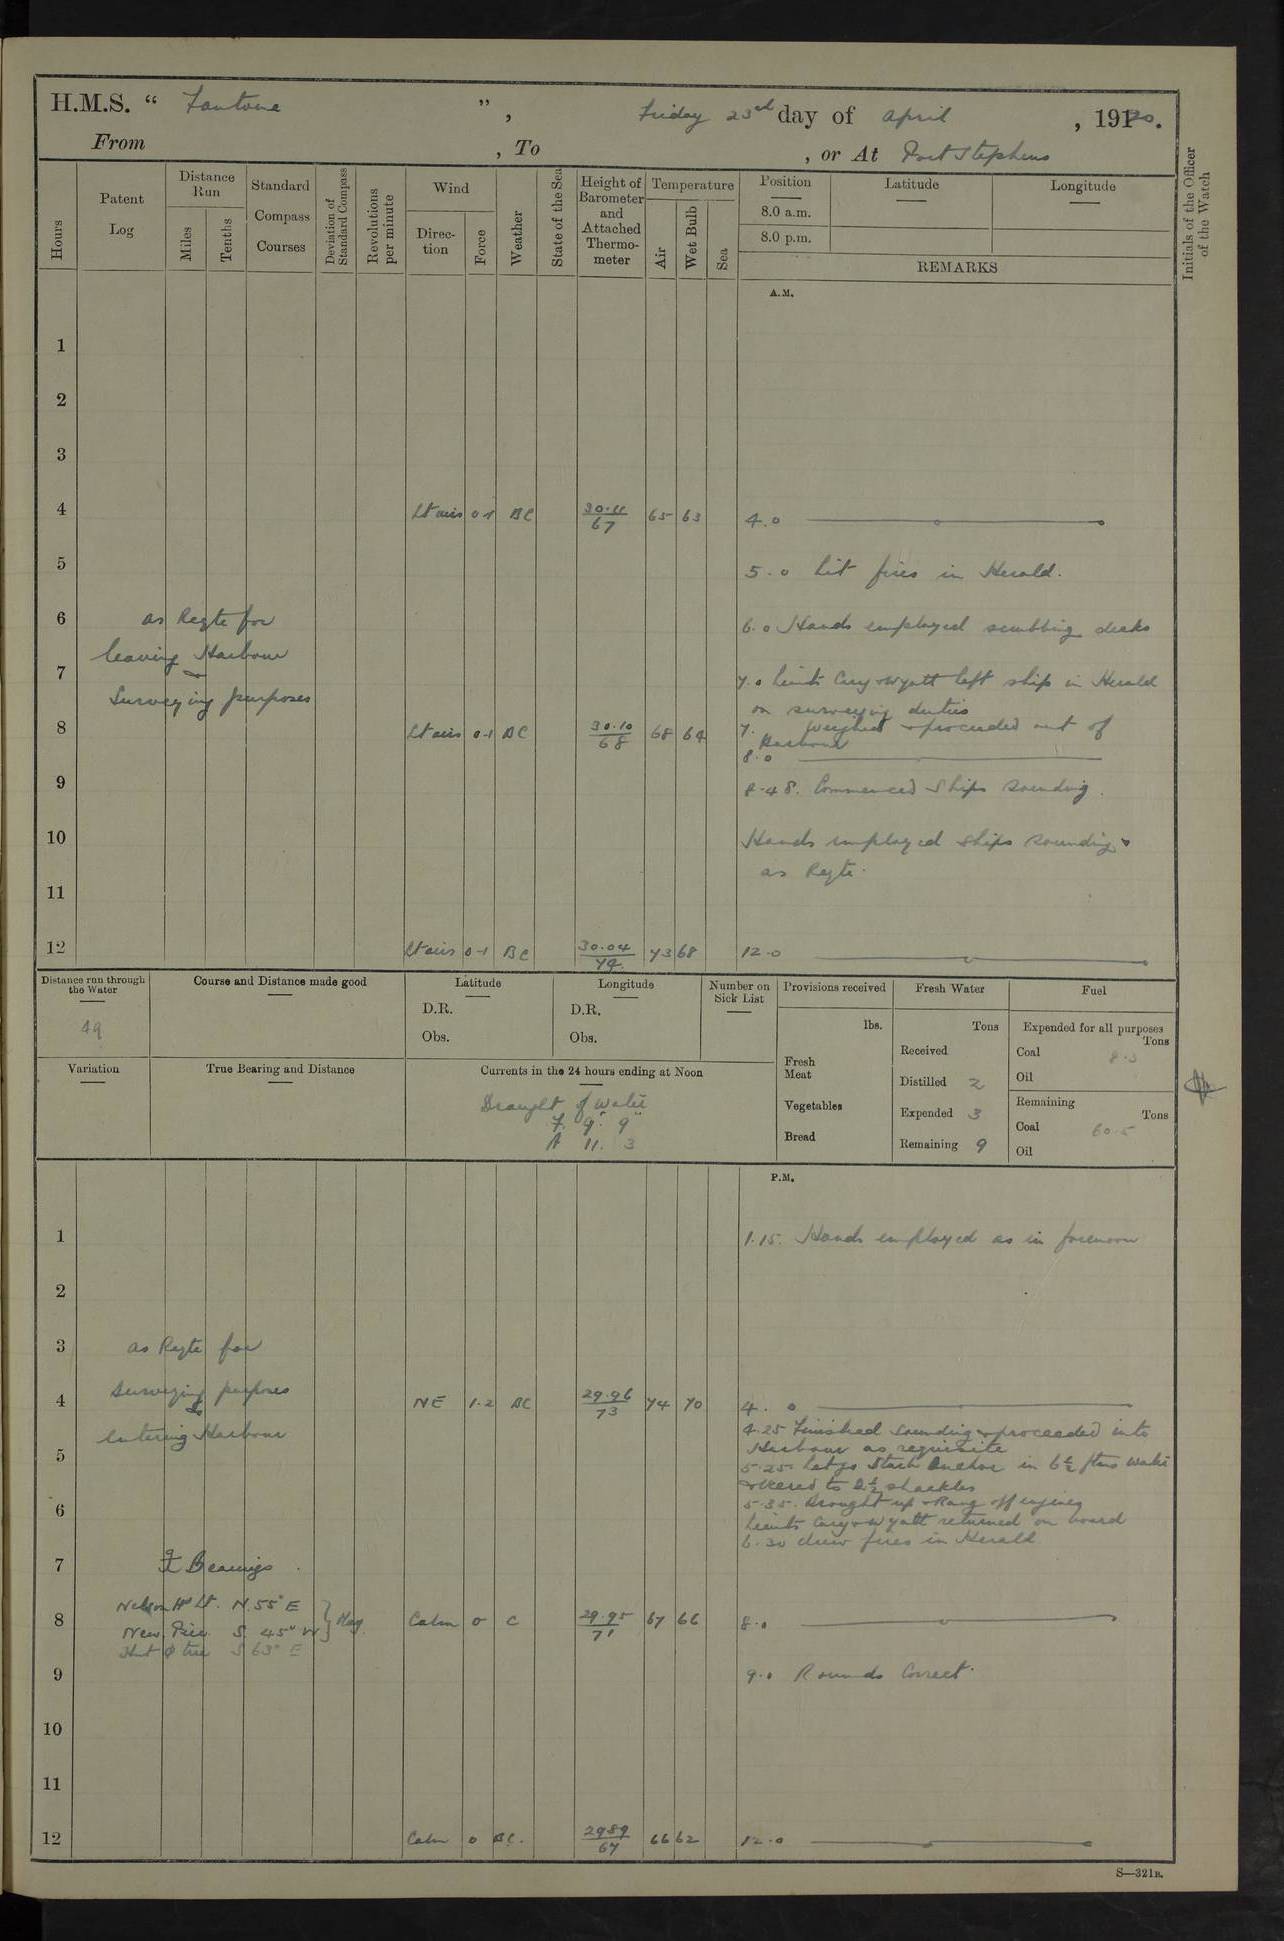 H.M.S. “ Fantome ”, Friday 23rd day of April, 1920.
From , To , or At Port Stephens
Hours
Patent Log
Distance Run
Miles
Tenths
Standard Compass Courses
Deviation of Standard Compass
Revolutions per minute
Wind
Direction
Force
Weather
State of the Sea
Height of Barometer and Attached Thermometer
Temperature
Air
Wet Bulb
Sea
Position
8.0 a.m.
8.0 p.m.
Latitude
Longitude
REMARKS
Initials of the Officer of the Watch
A.M.
1
2
3
4 Lt airs 0-1 BC 30.11/67 65 63 4.0
5 5.0 Lit fires in Herald.
6 as Reqte for 6.0 Hands employed scrubbing decks
leaving Harbour
7 & 7.0 Lieuts Cary & Wyatt left ship in Herald
Surveying purposes on surveying duties
8 Lt airs 0-1 BC 30.10/68 68 64 7. Weighed & proceeded out of
Harbour
8.0
9 8.48. Commenced Ships sounding.
10 Hands employed Ships sounding &
as Reqte.
11
12 Lt airs 0-1 BC 30.04/74 73 68 12.0
Distance run through the Water
49
Course and Distance made good
Latitude
D.R.
Obs.
Longitude
D.R.
Obs.
Number on Sick List
Provisions received
lbs.
Fresh Meat
Vegetables
Bread
Fresh Water
Tons
Received
Distilled 2
Expended 3
Remaining 9
Fuel
Expended for all purposes
Tons
Coal 8.5
Oil
Remaining
Tons
Coal 60.5
Oil
Variation
True Bearing and Distance
Currents in the 24 hours ending at Noon
Draught of Water
F. 9' 9"
A 11. 3
P.M.
1 1.15. Hands employed as in forenoon
2
3 as Reqte for
4 Surveying purposes NE 1-2 BC 29.96/73 74 70 4.0
&
entering Harbour 4.25 Finished sounding & proceeded into
Harbour as requisite
5 5.25. Let go Starb Anchor in 6½ fthms water
& veered to 2½ shackles
6 5.35. Brought up & Rang off engines
Lieuts Cary & Wyatt returned on board
6.30 drew fires in Herald
7 Bearings
Nelson Hd Lt. N. 55° E
8 New Pier S. 45° W } Mag. Calm 0 C 29.95/71 67 66 8.0
Hut & tree S 63° E
9 9.0 Rounds Correct.
10
11
12 Calm 0 BC. 29.89/67 66 62 12.0
S—321B.